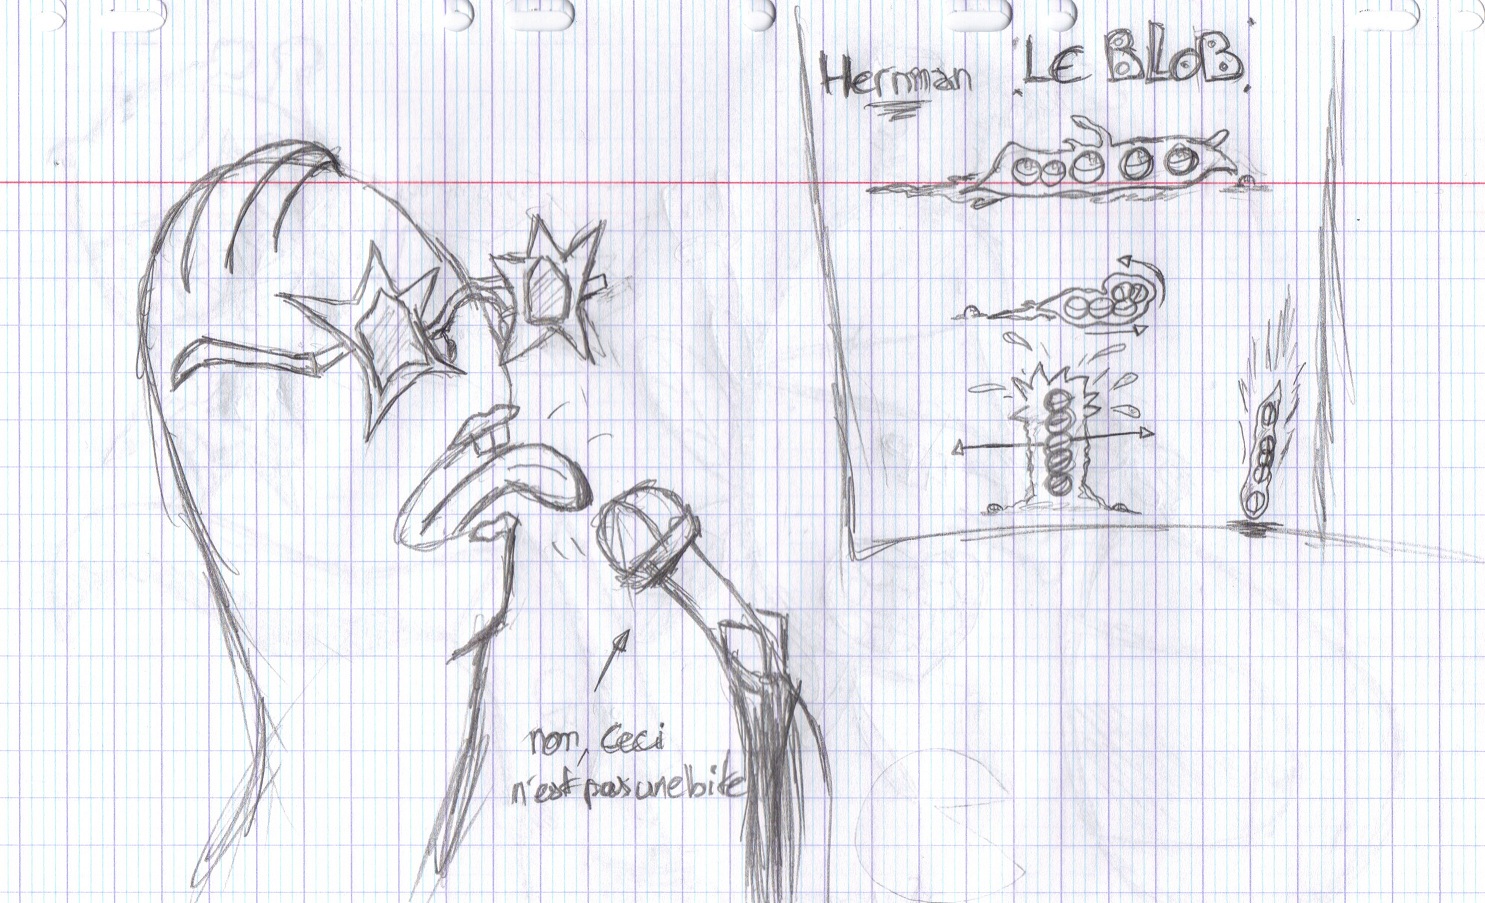 Hernman LE BLOB
non, Ceci
n'est pas une bite